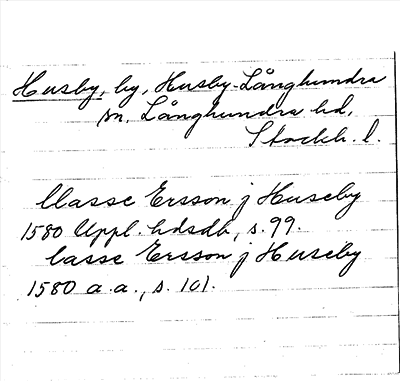 Husby, by, Husby-Långhundra
sn, Långhundra hd,
Stockh. l.
Classe Ersson j Huseby
1580 Uppl. hdsdb, s. 99.
Casse Ersson j Huseby
1580 a.a., s. 101.